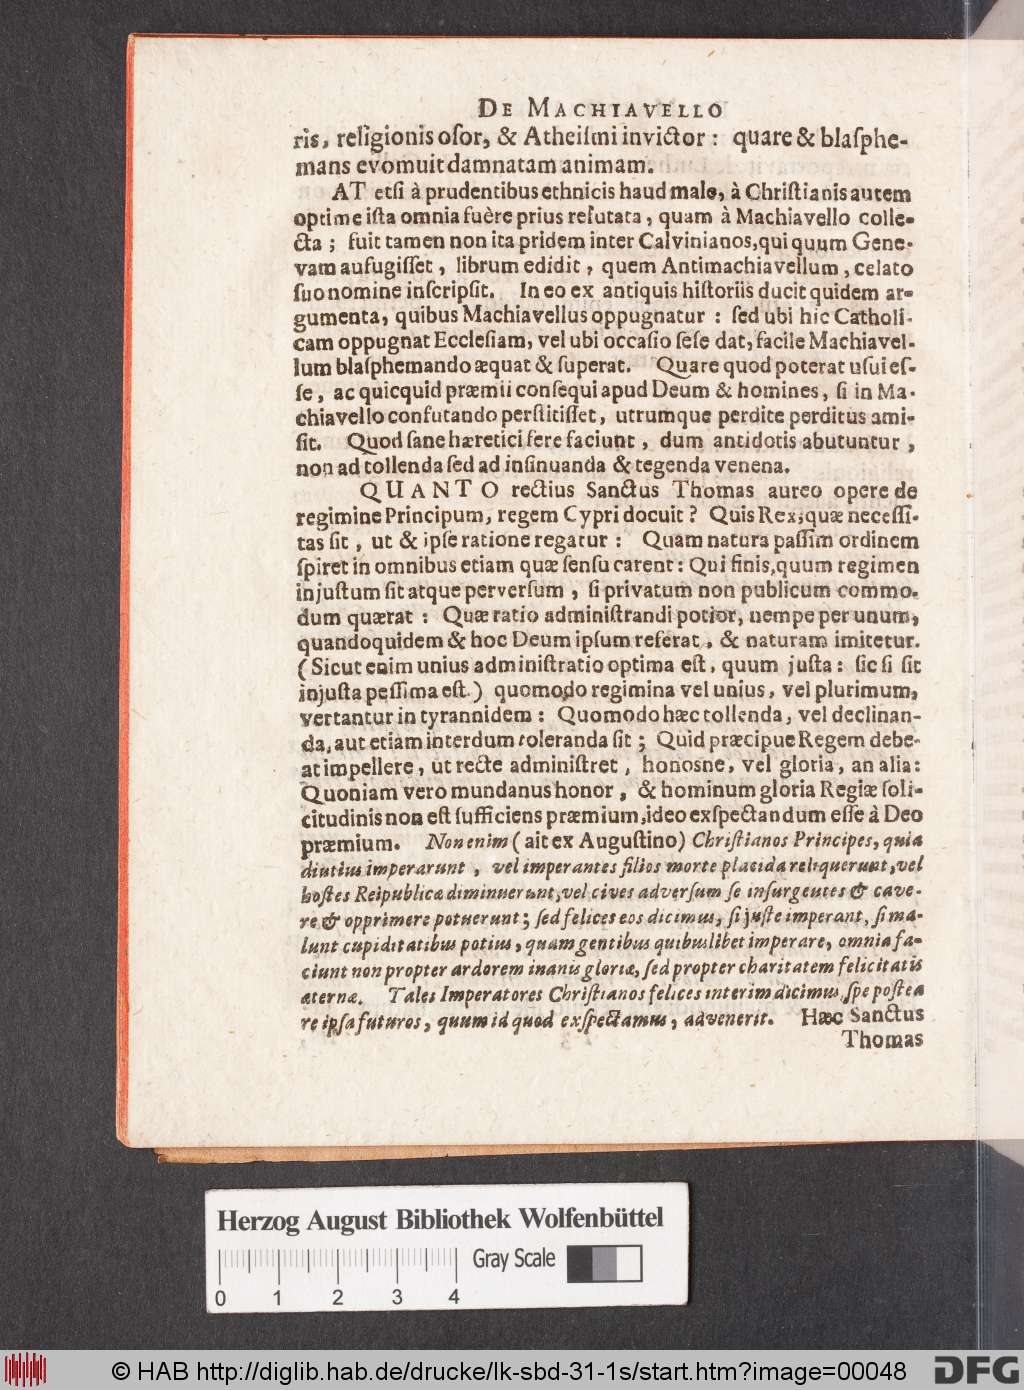 DE MACHIAVELLO
ris, religionis osor, & Atheiſmi invictor: quare & blaſphe-
mans evomuit damnatam animam.
AT etſi à prudentibus ethnicis haud male, à Chriſtianis autem
optime iſta omnia fuère prius refutata, quam à Machiavello colle-
cta; fuit tamen non ita pridem inter Calvinianos, qui quum Gene-
vam aufugiſſet, librum edidit, quem Antimachiavellum, celato
ſuo nomine inſcripſit. In eo ex antiquis hiſtoriis ducit quidem ar-
gumenta, quibus Machiavellus oppugnatur: ſed ubi hic Catholi-
cam oppugnat Eccleſiam, vel ubi occaſio ſeſe dat, facile Machiavel-
lum blaſphemando æquat & ſuperat. Quare quod poterat uſui eſ-
ſe, ac quicquid præmii conſequi apud Deum & homines, ſi in Ma-
chiavello confutando perſtitiſſet, utrumque perdite perditus ami-
ſit. Quod ſane hæretici fere faciunt, dum antidotis abutuntur,
non ad tollenda ſed ad inſinuanda & tegenda venena.
QUANTO rectius Sanctus Thomas aureo opere de
regimine Principum, regem Cypri docuit? Quis Rex, quæ neceſſi-
tas ſit, ut & ipſe ratione regatur: Quam natura paſſim ordinem
ſpiret in omnibus etiam quæ ſenſu carent: Qui finis, quum regimen
injuſtum ſit atque perverſum, ſi privatum non publicum commo-
dum quærat: Quæ ratio adminiſtrandi potior, nempe per unum,
quandoquidem & hoc Deum ipſum referat, & naturam imitetur.
(Sicut enim unius adminiſtratio optima eſt, quum juſta: ſic ſi ſit
injuſta peſſima eſt.) quomodo regimina vel unius, vel plurimum,
vertantur in tyrannidem: Quomodo hæc tollenda, vel declinan-
da, aut etiam interdum toleranda ſit; Quid præcipue Regem debe-
at impellere, ut recte adminiſtret, honosne, vel gloria, an alia:
Quoniam vero mundanus honor, & hominum gloria Regiæ ſoli-
citudinis non eſt ſufficiens præmium, ideo exſpectandum eſſe à Deo
præmium. Non enim (ait ex Auguſtino) Chriſtianos Principes, quia
diutius imperarunt, vel imperantes filios morte placida reliquerunt, vel
hoſtes Reipublicæ diminuerunt, vel cives adverſum ſe inſurgentes & cave-
re & opprimere potuerunt; ſed felices eos dicimus, ſi juſte imperant, ſi ma-
lunt cupiditatibus potius, quam gentibus quibuslibet imperare, omnia fa-
ciunt non propter ardorem inanis gloriæ, ſed propter charitatem felicitatis
æternæ. Tales Imperatores Chriſtianos felices interim dicimus, ſpe poſtea
re ipſa futuros, quum id quod exſpectamus, advenerit. Hæc Sanctus
Thomas
Herzog August Bibliothek Wolfenbüttel
Gray Scale
0 1 2 3 4
© HAB http://diglib.hab.de/drucke/lk-sbd-31-1s/start.htm?image=00048
DFG